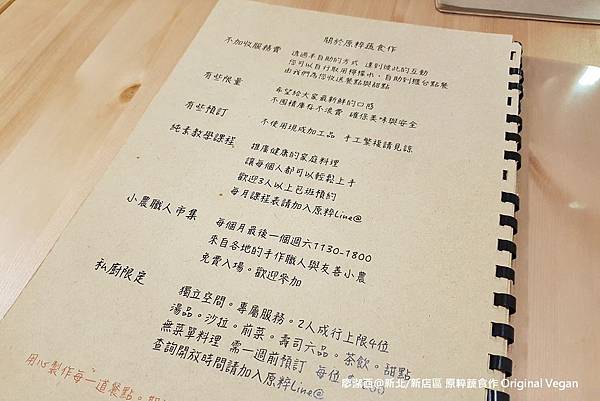 關於原粹蔬食作
不加收服務費 透過半自助的方式 達到彼此的互動
您可以自行取用檸檬水、自助到櫃台點餐
由我們為您收送餐點與甜點
有些限量 希望給大家最新鮮的口感
不囤積庫存不浪費 確保美味與安全
有些預訂 不使用現成加工品 手工繁複請見諒
純素教學課程 推廣健康的家庭料理
讓每個人都可以輕鬆上手
歡迎3人以上包班預約
每月課程表請加入原粹Line@
小農職人市集 每個月最後一個週六1130-1800
來自各地的手作職人與友善小農
免費入場。歡迎參加
私廚限定 獨立空間。專屬服務。2人成行上限4位
湯品。沙拉。前菜。壽司六品。茶飲。甜點
無菜單料理 需一週前預訂 每位
查詢開放時間請加入原粹Line@
用心製作每一道餐點。
廖潔西@新北/新店區 原粹蔬食作 Original Vegan